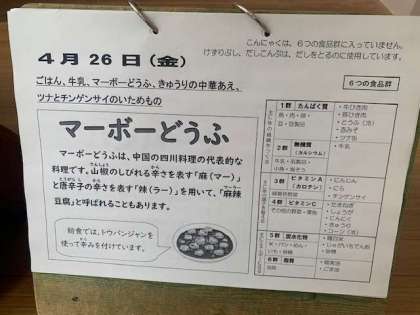 こんにゃくは、6つの食品群に入っていません。
けずりぶし、だしこんぶは、だしをとるのに使用しています。
4月26日(金)
ごはん、牛乳、マーボーどうふ、きゅうりの中華あえ、
ツナとチンゲンサイのいためもの
マーボーどうふ
マーボーどうふは、中国の四川料理の代表的な
料理です。山椒のしびれる辛さを表す「麻(マー)」
と唐辛子の辛さを表す「辣(ラー)」を用いて、「麻辣
豆腐」と呼ばれることもあります。
給食では、トウバンジャンを
使って辛みを付けています。
6つの食品群
1群 たんぱく質
魚・肉・卵・
豆・豆製品
・牛ひき肉
・豚ひき肉
・とうふ
・赤みそ
・ツナ缶
2群 無機質
(カルシウム)
牛乳・乳製品・
・牛乳
3群 ビタミンA
(カロテン)
緑黄色野菜
・にんじん
・にら
4群 ビタミンC
その他の野菜・果物
・たまねぎ
・しょうが
・にんにく
・きゅうり
5群 炭水化物
米・パン・めん・
いも・砂糖
・砂糖
6群 脂肪
・ごま油